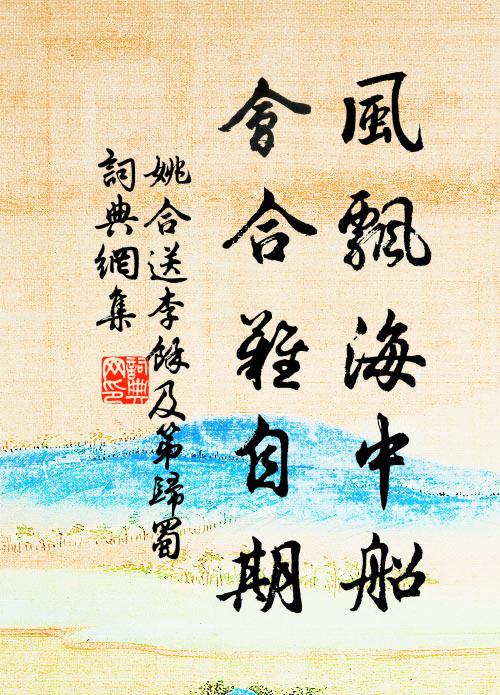 風飄海中船
會合難自期
姚合送李餘及第歸蜀
詞典網集
詞典
网印